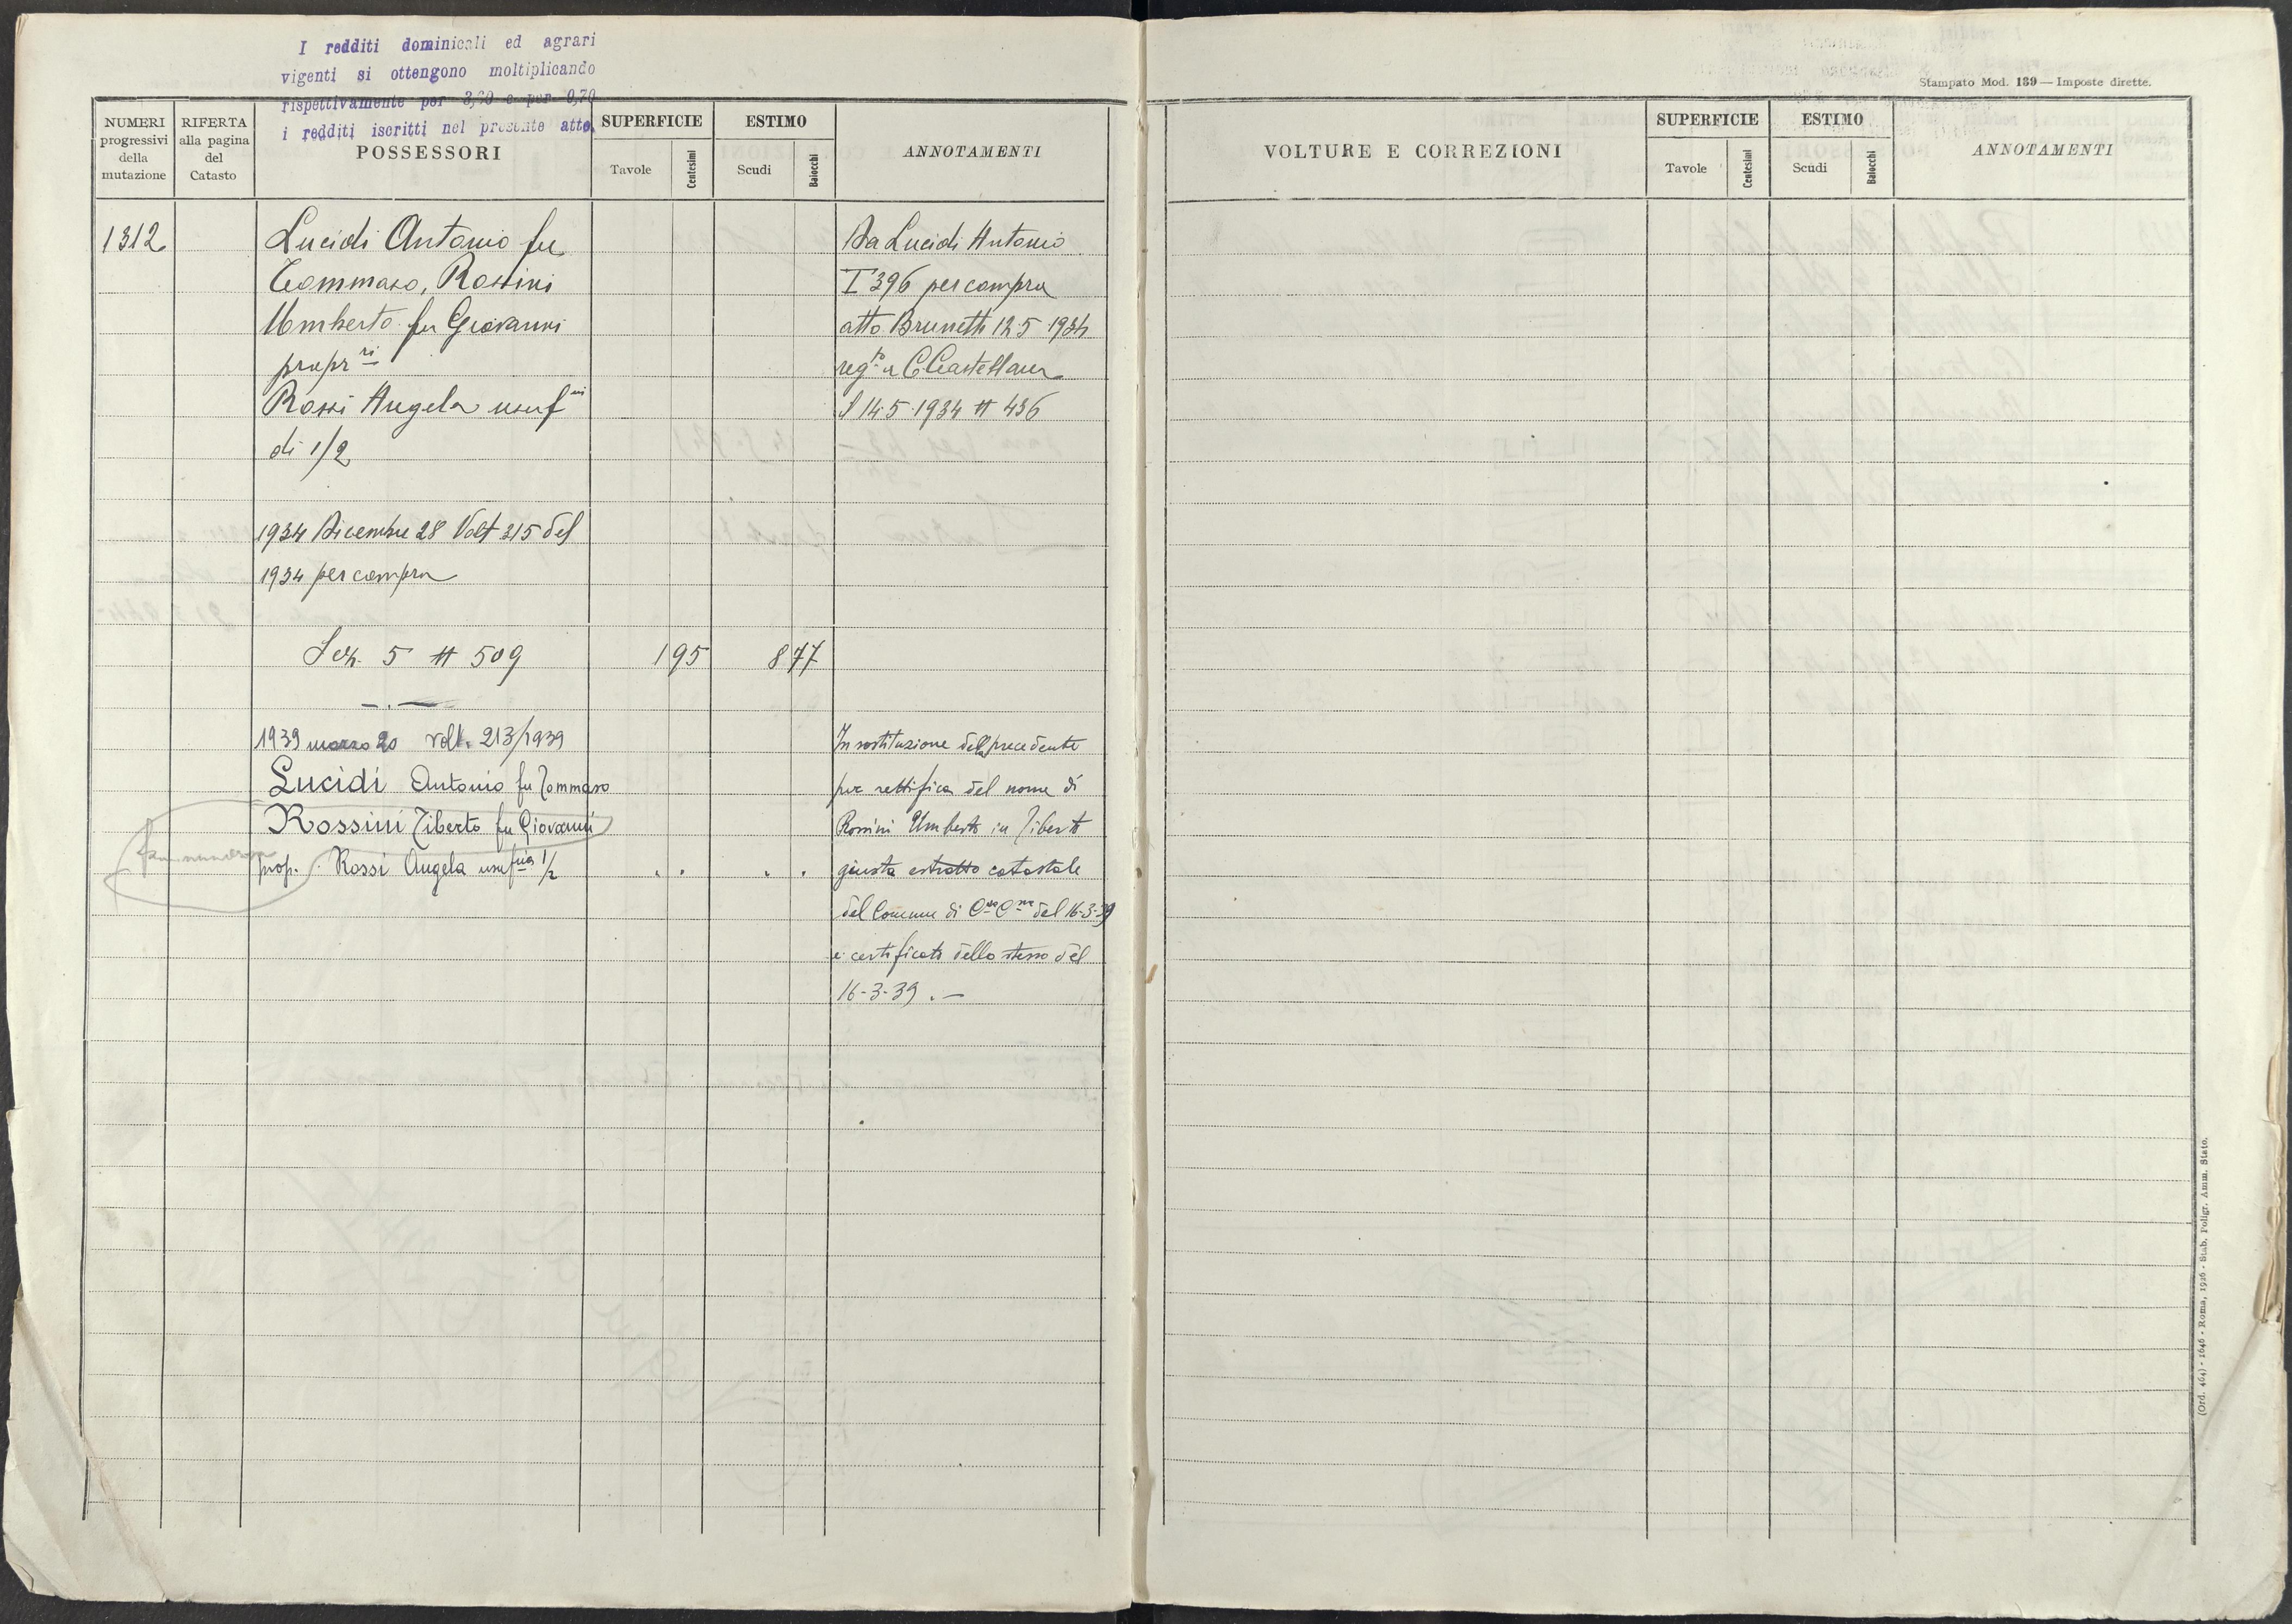 I redditi dominicali ed agrari
vigenti si ottengono moltiplicando
rispettivamente per 3,20 e per 0,70
i redditi iscritti nel presente atto.
Stampato Mod. 139 — Imposte dirette.
NUMERI progressivi della mutazione
RIFERTA alla pagina del Catasto
POSSESSORI
SUPERFICIE
Tavole
Centesimi
ESTIMO
Scudi
Baiocchi
ANNOTAMENTI
1312
Lucidi Antonio fu
Tommaso, Rossini
Umberto fu Giovanni
propr ri
Rossi Angela usuf
di 1/2
1934 Dicembre 28 Volt 315 del
1934 per compra
Sez. 5 # 509
1 95
8 77
Da Lucidi Antonio
I 396 per compra
atto Brunetti 12 5 1934
reg.to a C. Castellana
l 14 5 1934 # 436
1939 marzo 20 volt. 213/1939
Lucidi Antonio fu Tommaso
Rossini Tiberto fu Giovanni
prop. Rossi Angela usufria 1/2
In sostituzione della precedente
per rettifica del nome di
Rossini Umberto in Tiberto
giusta estratto catastale
del Comune di del 16-3-39
e certificato dello stesso del
16-3-39 . —
VOLTURE E CORREZIONI
SUPERFICIE
Tavole
Centesimi
ESTIMO
Scudi
Baiocchi
ANNOTAMENTI
(Ord. 464) - 1646 - Roma, 1926 - Stab. Poligr. Amm. Stato.